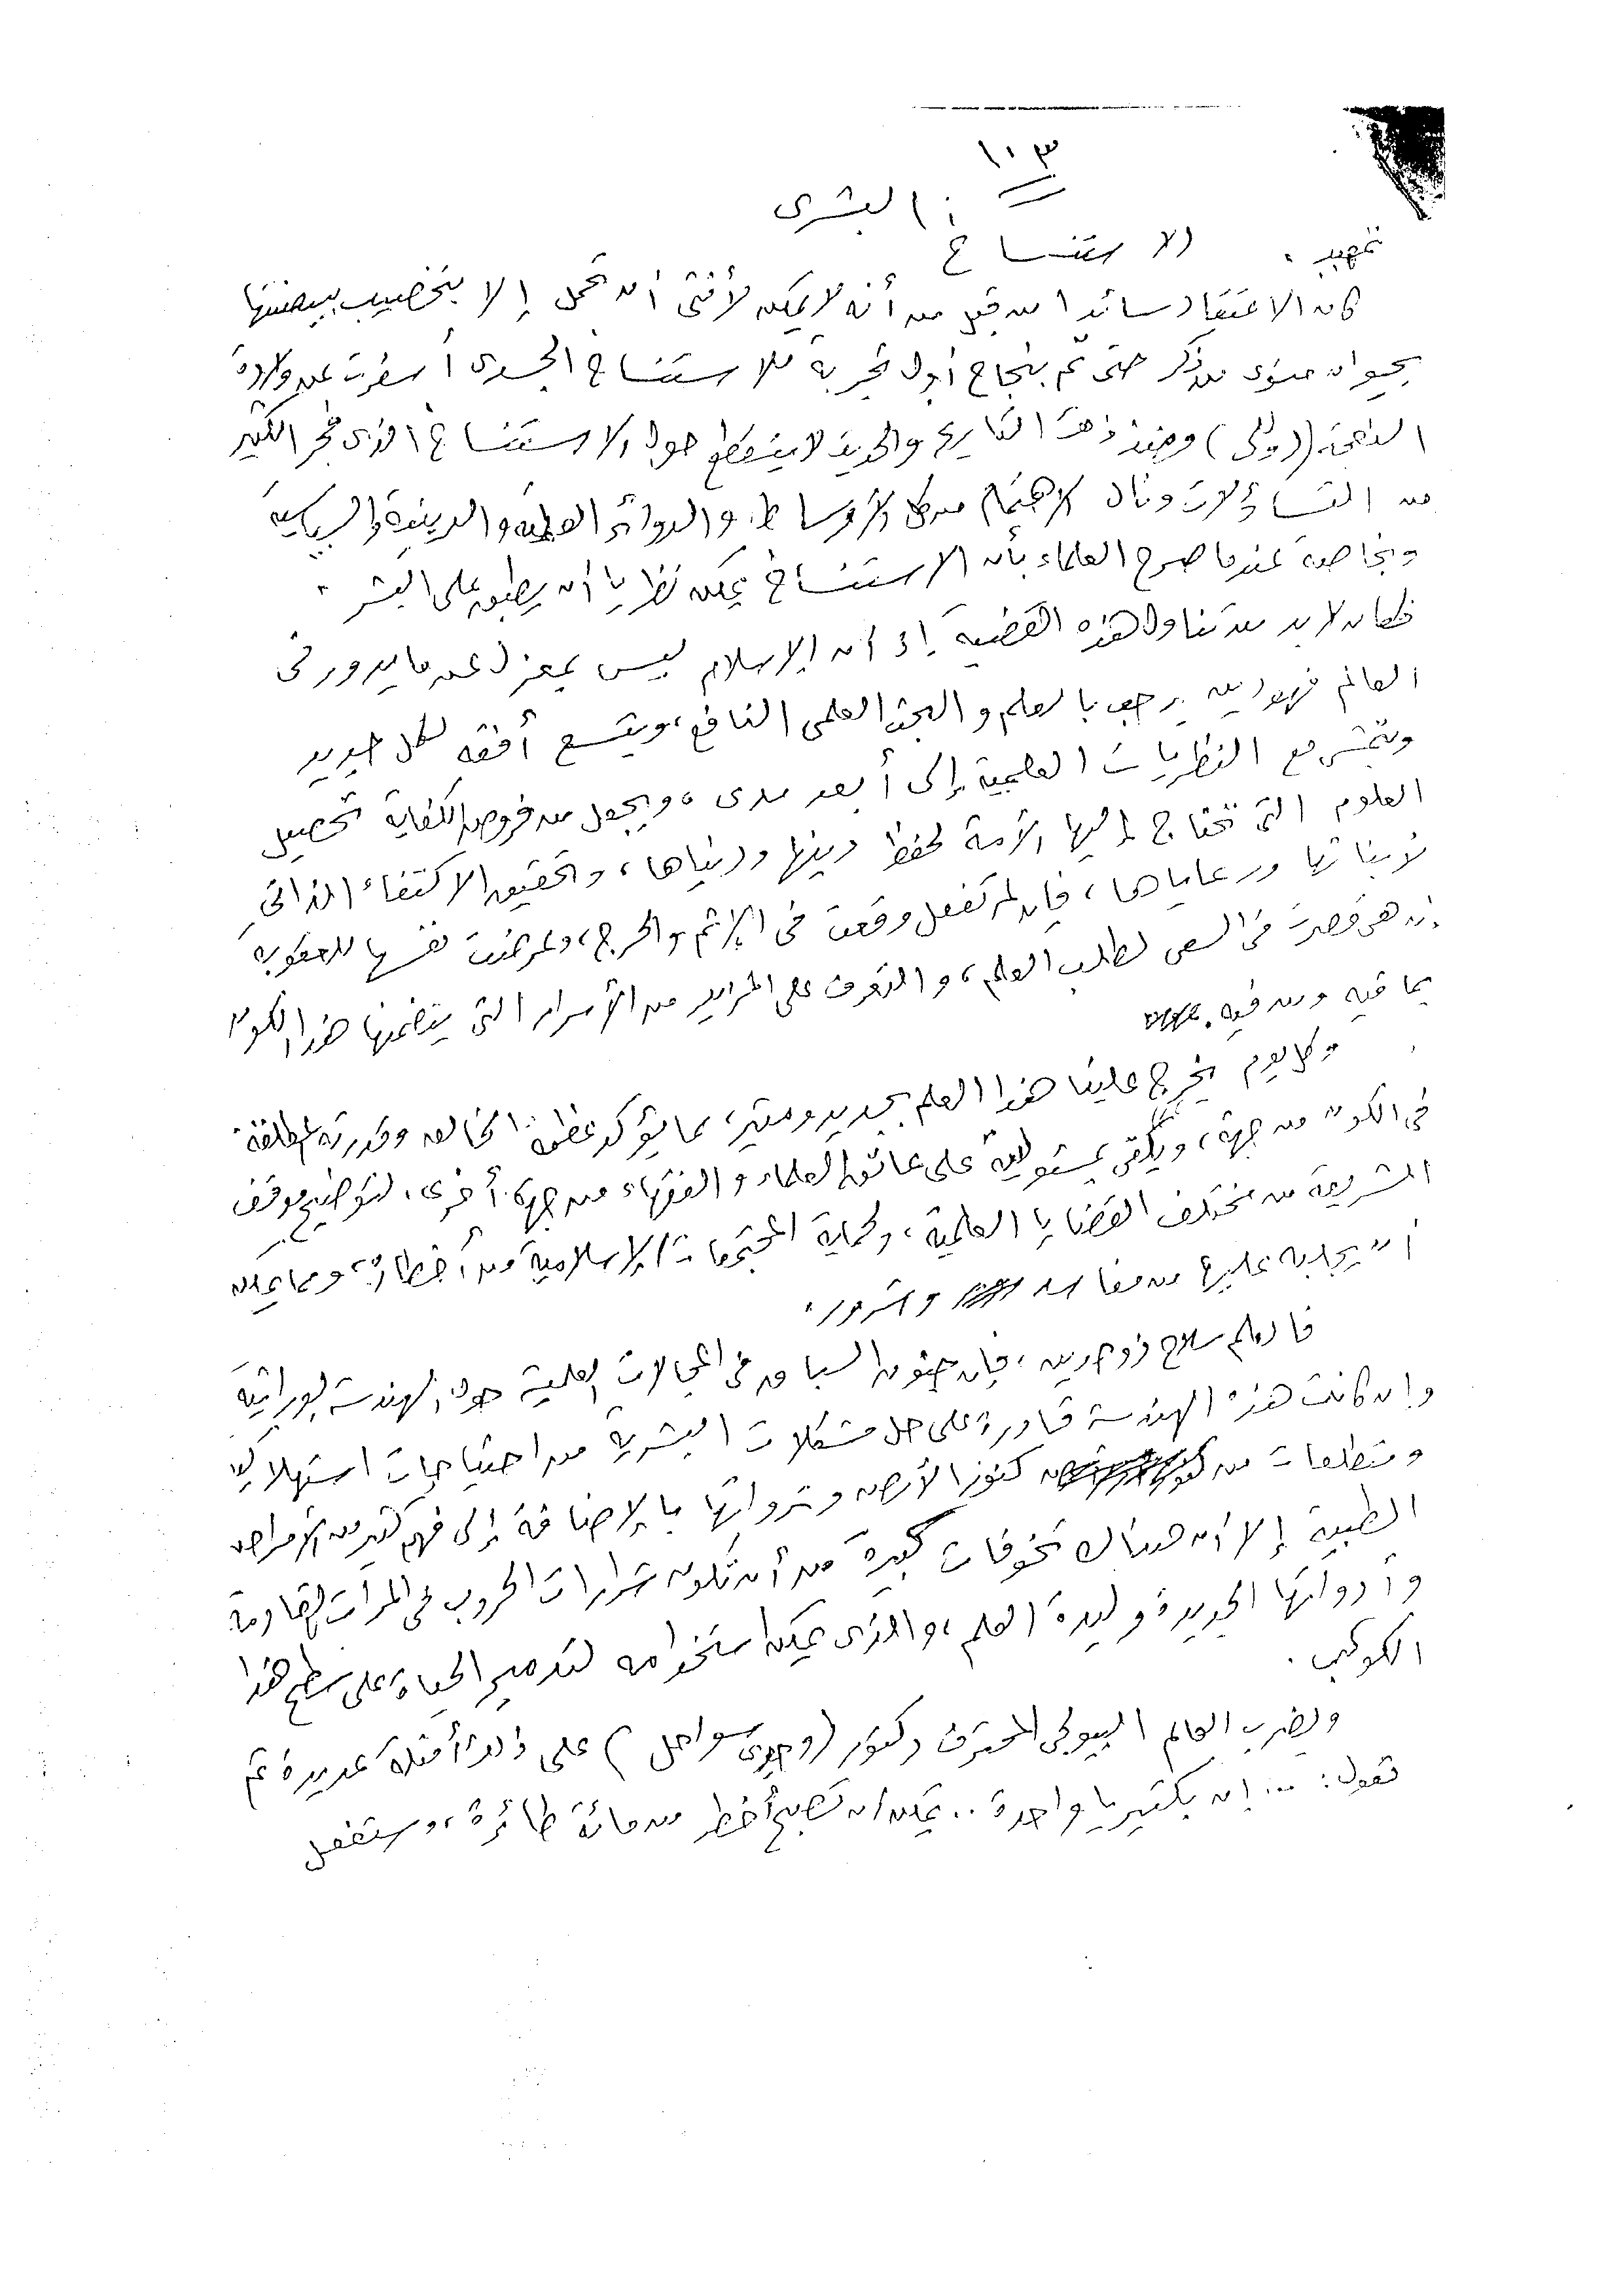 ١٠٣
الاستنساخ البشرى
تمهيد :
كان الاعتقاد سائدا من قبل من أنه لا يمكن لأنثى أن تحمل إلا بتخصيب بييضتها
بحيوان منوى من ذكر حتى تم بنجاح أول تجربة للاستنساخ الجسدى أسفرت عن ولادة
النعجة (دوللى) ومنذ ذلك التاريخ والحديث لا ينقطع حول الاستنساخ الذى فجر الكثير
من التساؤلات ونال الاهتمام من كل الأوساط والدوائر العلمية والدينية والسياسية
وبخاصة عندما صرح العلماء بأن الاستنساخ يمكن نظريا أن يطبق على البشر .
فكان لا بد من تناول هذه القضية إذ أن الإسلام ليس بمعزل عن ما يدور فى
العالم فهو دين يرحب بالعلم والبحث العلمى النافع، ويتسع أفقه لكل جديد
ويتمشى مع النظريات العلمية إلى أبعد مدى، ويجعل من فروض الكفاية تحصيل
العلوم التى تحتاج إليها الأمة لحفظ دينها ودنياها، وتحقيق الاكتفاء الذاتى
لأبنائها ورعاياها، فإن لم تفعل وقعت فى الإثم والحرج، وعرضت نفسها للعقوبة
إن هى قصرت فى السعى لطلب العلم، والتعرف على المزيد من الأسرار التى يتضمنها هذا الكون
بما فيه ومن فيه .
وكل يوم يخرج علينا هذا العلم بجديد ومثير، مما يؤكد عظمة الخالق وقدرته المطلقة
فى الكون من جهة، ويلقى بمسئولية على عاتق العلماء والفقهاء من جهة أخرى، لتوضيح موقف
الشريعة من مختلف القضايا العلمية، ولحماية المجتمعات الإسلامية من أخطار، ومما يمكن
أن يجلبه عليها من مفاسد وشرور .
فالعلم سلاح ذو حدين، فإن جنون السباق فى المجالات العلمية حول الهندسة الوراثية
وإن كانت هذه الهندسة قادرة على حل مشكلات البشرية من احتياجات استهلاكية
ومتطلعات من كنوز الأرض وثرواتها بالإضافة إلى فهم كثير من الأمراض
الطبية إلا أن هناك تخوفات كبيرة من أن تكون شرارات الحروب فى المرات القادمة
وأدواتها الجديدة وليدة العلم، والذى يمكن استخدامه لتدمير الحياة على سطح هذا
الكوكب .
ويضرب العالم البيولجى المحترف دكتور (وجدى سواحل) على ذلك أمثلة عديدة ثم
تقول: ... إن بكتيريا واحدة .. يمكن أن تصبح أخطر من مائة طائرة، وستفعل